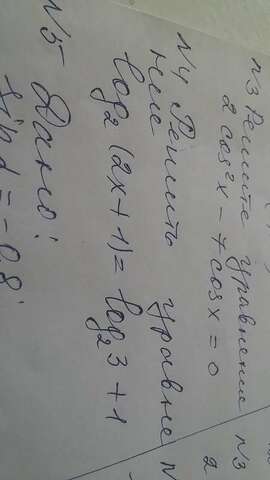 N3 Решите уравнение
2 cos² x - 7 cos x = 0
N4 Решить уравне
ние
log₂ (2x + 1) = log₂ 3 + 1
N5 Дано:
sin α = -0,8
N3
2
N